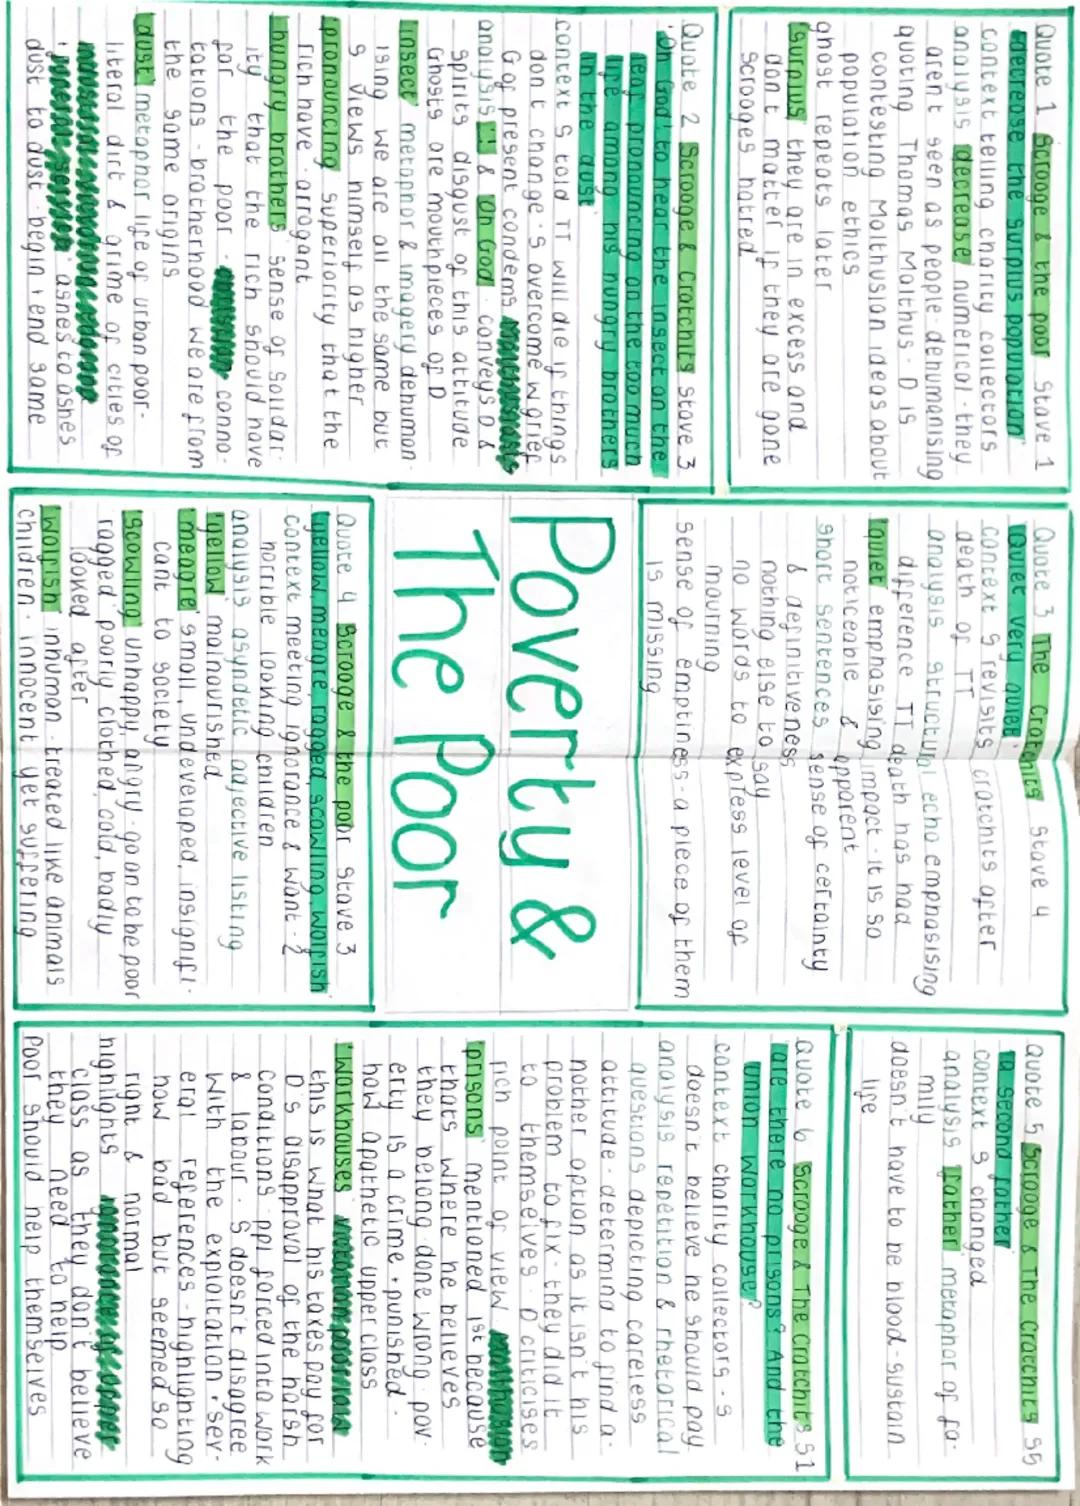 Quote 1 Scrooge & the poor Stave 1
'decrease the surplus population'
context telling charity collectors
analysis 'decrease' numerical · they
arent seen as people · dehumanising
quoting Thomas Malthus · D is
contesting Malthusion ideas about
population ethics
ghost repeats later
'surplus' they are in excess and
don't matter if they are gone
scrooges hatred
Quote 2 Scrooge & Cratchits Stave 3
'Oh God! to hear the insect on the
leaf pronouncing on the too much
life among his hungry brothers
in the dust'
context S told TT will die if things
don't change · S overcome w grief
G of present condems
analysis '!' & 'Oh God' · conveys D &
spirits disgust of this attitude
Ghosts are mouthpieces of D
'insect' metaphor & imagery dehuman·
ising we are all the same but
S views himself as higher
'pronouncing' superiority that the
rich have · arrogant
'hungry brothers' sense of solidar·
ity that the rich should have
for the poor · conno·
tations · brotherhood we are from
the same origins
'dust' metaphor life of urban poor·
literal dirt & grime of cities of
ashes to ashes
dust to dust · begin & end same
Quote 3 The Cratchits Stave 4
'Quiet very quiet'
context S revisits cratchits after
death of TT
analysis structural echo emphasising
difference TT death has had
'quiet' emphasising impact · it is so
noticeable & apparent
short sentences sense of certainty
& definitiveness
nothing else to say
no words to express level of
mourning
sense of emptiness · a piece of them
is missing
Poverty &
The Poor
Quote 4 Scrooge & the poor Stave 3
'yellow meagre ragged, scowling, wolfish'
context meeting ignorance & want · 2
horrible looking children
analysis asyndetic adjective listing
'yellow' malnourished
'meagre' small, undeveloped, insignifi·
cant to society
'scowling' unhappy, angry · go on to be poor
ragged' poorly clothed, cold, badly
looked after
'wolfish' inhuman · treated like animals
children · innocent yet suffering
quote 5 Scrooge & The Cratchits S5
'a second father'
context S changed
analysis 'father' metaphor of fa·
mily
doesn't have to be blood · sustain
life
quote 6 Scrooge & The Cratchits S1
'are there no prisons? And the
union workhouse?'
context charity collectors · S
doesn't believe he should pay
analysis repetition & rhetorical
questions depicting careless
attitude · determind to find a·
nother option as it isn't his
problem to fix · they did it
to themselves · D criticises
rich point of view
'prisons' mentioned 1st because
thats where he believes
they belong · done wrong · pov·
erty is a crime & punished ·
how apathetic upper class
'workhouses'
this is what his taxes pay for
D's disapproval of the harsh
conditions · ppl forced into work
& labour · S doesn't disagree
with the exploitation · sev·
eral references · highlighting
how bad but seemed so
right & normal
highlights
class as they don't believe
they need to help
Poor should help themselves